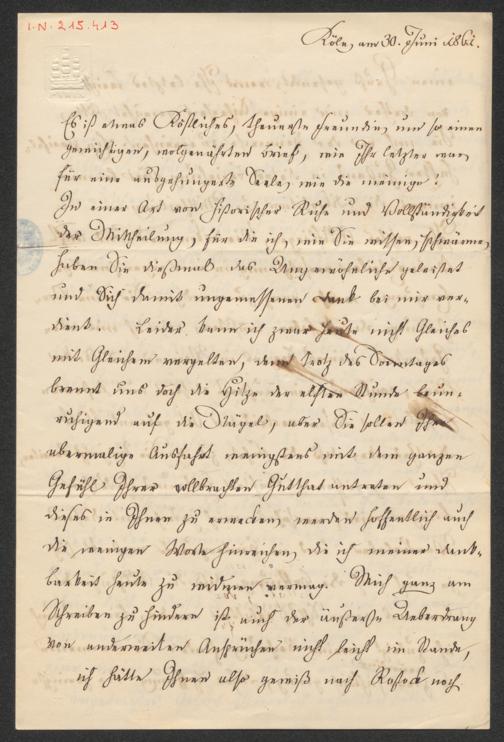 I.N. 215.413
Köln, am 30. Juni 1861.
Es ist etwas Köstliches, theuerste Freundin, um so einen
gewichtigen, wolgenährten Brief, wie Ihr letzter war,
für eine ausgehungerte Seele, wie die meinige!
In einer Art von historischer Ruhe und Vollständigkeit
der Mittheilung, für die ich, wie Sie wissen, schwärme,
haben Sie dießmal das Ungewöhnliche geleistet
und Sich damit ungemessenen Dank bei mir ver-
dient. Leider kann ich zwar heute nicht Gleiches
mit Gleichem vergelten, denn trotz des Sonntages
brennt uns doch die Hitze der elften Stunde beun-
ruhigend auf die Nägel, aber Sie sollen Ihre
abermalige Ausfahrt wenigstens mit dem ganzen
Gefühl Ihrer vollbrachten Gutthat antreten und
dieses in Ihnen zu erwecken, werden hoffentlich auch
die wenigen Worte hinreichen, die ich meiner Dank-
barkeit heute zu widmen vermag. Mich ganz am
Schreiben zu hindern ist auch der äußerste Ueberdrang
von anderweiten Ansprüchen nicht leicht im Stande,
ich hätte Ihnen also gewiß nach Rostock noch